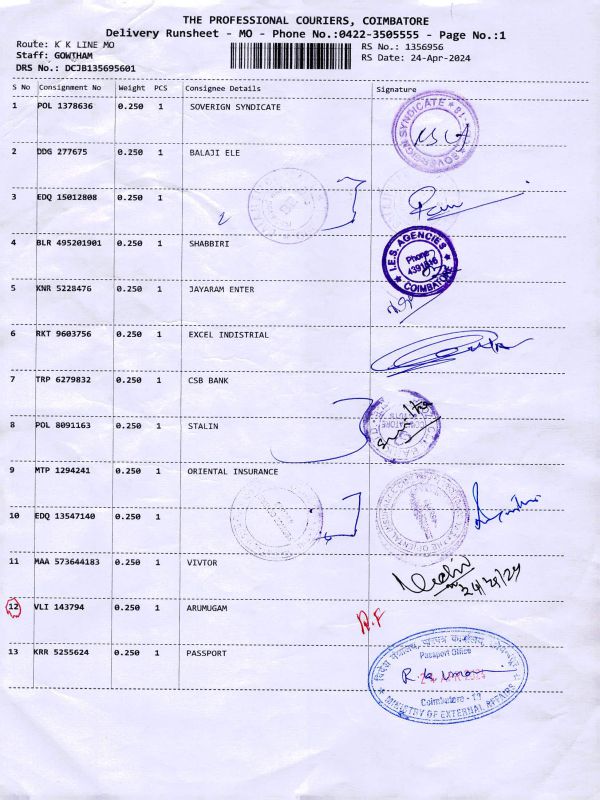 THE PROFESSIONAL COURIERS, COIMBATORE
Delivery Runsheet - MO - Phone No.:0422-3505555 - Page No.:1
Route: K K LINE MO
RS No.: 1356956
Staff: GOWTHAM
RS Date: 24-Apr-2024
DRS No.: DCJB135695601
S No Consignment No Weight PCS Consignee Details Signature
1 POL 1378636 0.250 1 SOVERIGN SYNDICATE
SOVEREIGN SYNDICATE
2 DDG 277675 0.250 1 BALAJI ELE
3 EDQ 15012808 0.250 1
4 BLR 495201901 0.250 1 SHABBIRI
I.E.S. AGENCIES
Phone
COIMBATORE
5 KNR 5228476 0.250 1 JAYARAM ENTER
6 RKT 9603756 0.250 1 EXCEL INDISTRIAL
7 TRP 6279832 0.250 1 CSB BANK
8 POL 8091163 0.250 1 STALIN
9 MTP 1294241 0.250 1 ORIENTAL INSURANCE
10 EDQ 13547140 0.250 1
11 MAA 573644183 0.250 1 VIVTOR
24/04/24
12 VLI 143794 0.250 1 ARUMUGAM
A.F
13 KRR 5255624 0.250 1 PASSPORT
Passport Office
R.Kumar
Coimbatore - 18
MINISTRY OF EXTERNAL AFFAIRS